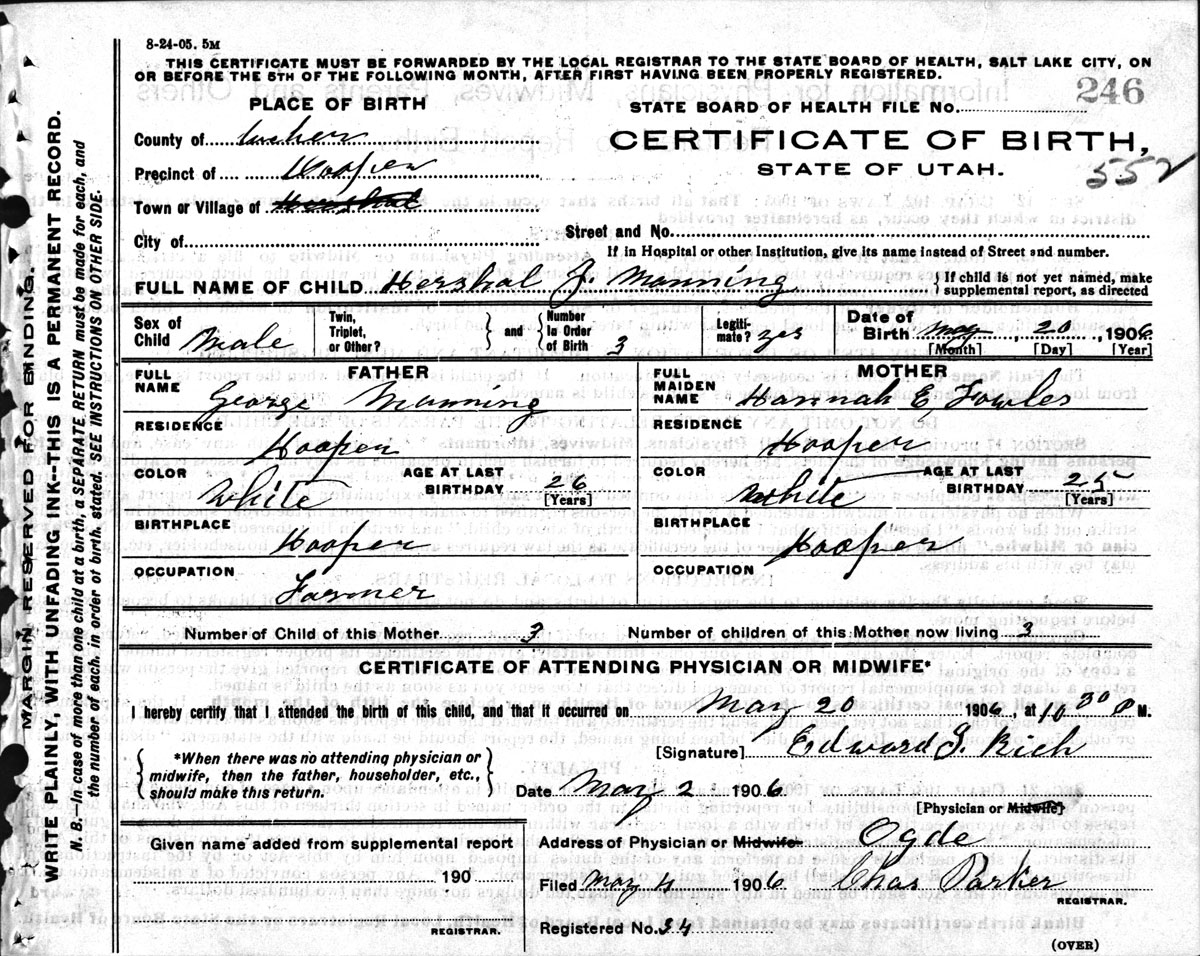 8-24-05. 5M
THIS CERTIFICATE MUST BE FORWARDED BY THE LOCAL REGISTRAR TO THE STATE BOARD OF HEALTH, SALT LAKE CITY, ON
OR BEFORE THE 5TH OF THE FOLLOWING MONTH, AFTER FIRST HAVING BEEN PROPERLY REGISTERED.
PLACE OF BIRTH
STATE BOARD OF HEALTH FILE NO. 246
County of
CERTIFICATE OF BIRTH,
STATE OF UTAH.
552
Precinct of Hooper
Town or Village of Hershal
City of
Street and No.
If in Hospital or other Institution, give its name instead of Street and number.
FULL NAME OF CHILD Hershal J. Manning { If child is not yet named, make supplemental report, as directed
Sex of Child Male Twin, Triplet, or Other? { and } Number In Order of Birth 3 Legitimate? yes Date of Birth May, 20, 1906 [Month] [Day] [Year]
FATHER
FULL NAME George Manning
RESIDENCE Hooper
COLOR White AGE AT LAST BIRTHDAY 26 [Years]
BIRTHPLACE Hooper
OCCUPATION Farmer
MOTHER
FULL MAIDEN NAME Hannah E Fowles
RESIDENCE Hooper
COLOR White AGE AT LAST BIRTHDAY 25 [Years]
BIRTHPLACE Hooper
OCCUPATION
Number of Child of this Mother 3 Number of children of this Mother now living 3
CERTIFICATE OF ATTENDING PHYSICIAN OR MIDWIFE*
I hereby certify that I attended the birth of this child, and that it occurred on May 20 1906, at 10 30 P M.
[Signature] Edward I. Rich
{ *When there was no attending physician or
midwife, then the father, householder, etc.,
should make this return. }
Date May 2 1906
[Physician or Midwife]
Given name added from supplemental report
190
REGISTRAR.
Address of Physician or Midwife Ogde
Filed May 4 1906 Chas Parker
REGISTRAR.
Registered No. 34
(OVER)
MARGIN RESERVED FOR BINDING.
WRITE PLAINLY, WITH UNFADING INK--THIS IS A PERMANENT RECORD.
N. B.—In case of more than one child at a birth, a SEPARATE RETURN must be made for each, and
the number of each, in order of birth, stated. SEE INSTRUCTIONS ON OTHER SIDE.